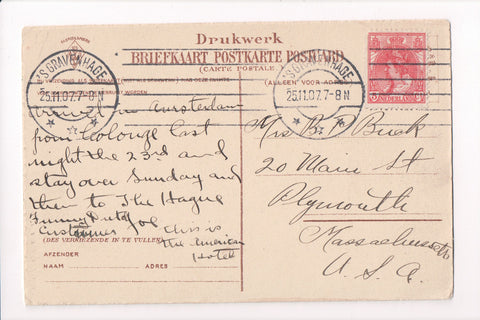 Drukwerk
BRIEFKAART POSTKARTE POSTCARD
(CARTE POSTALE)
'S GRAVENHAGE
25.11.07.7-8N
'S GRAVENHAGE
25.11.07.7-8N
NEDERLAND
in Amsterdam
from Cologne last
night the 23rd and
stay over Sunday and
then to The Hague
Funny Dutch Joe
Customes This is
the American
Hotel
(DES VERKIEZENDE IN TE VULLEN)
AFZENDER
NAAM ADRES
Mrs B F Buck
20 Main St
Plymouth
Massachusetts
U.S.A.